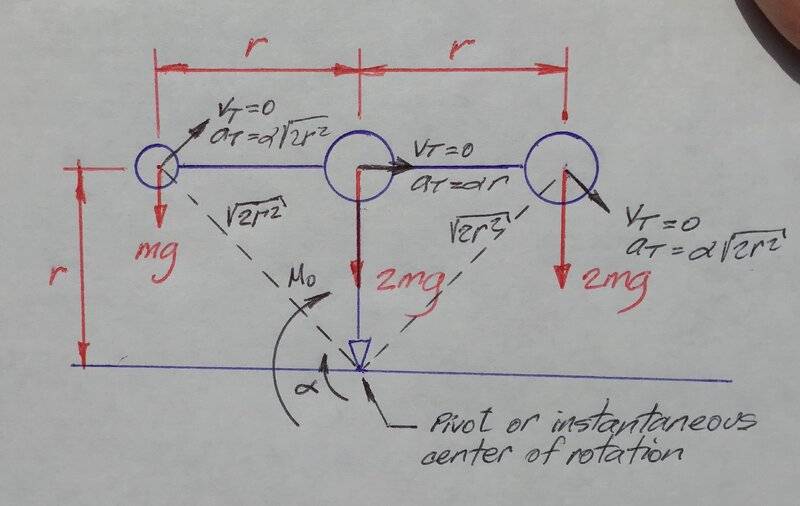 r
r
VT=0
aT=α√2r²
VT=0
aT=αr
VT=0
aT=α√2r²
√2r²
√2r²
r
mg
2mg
2mg
Mo
α
Pivot or instantaneous
center of rotation